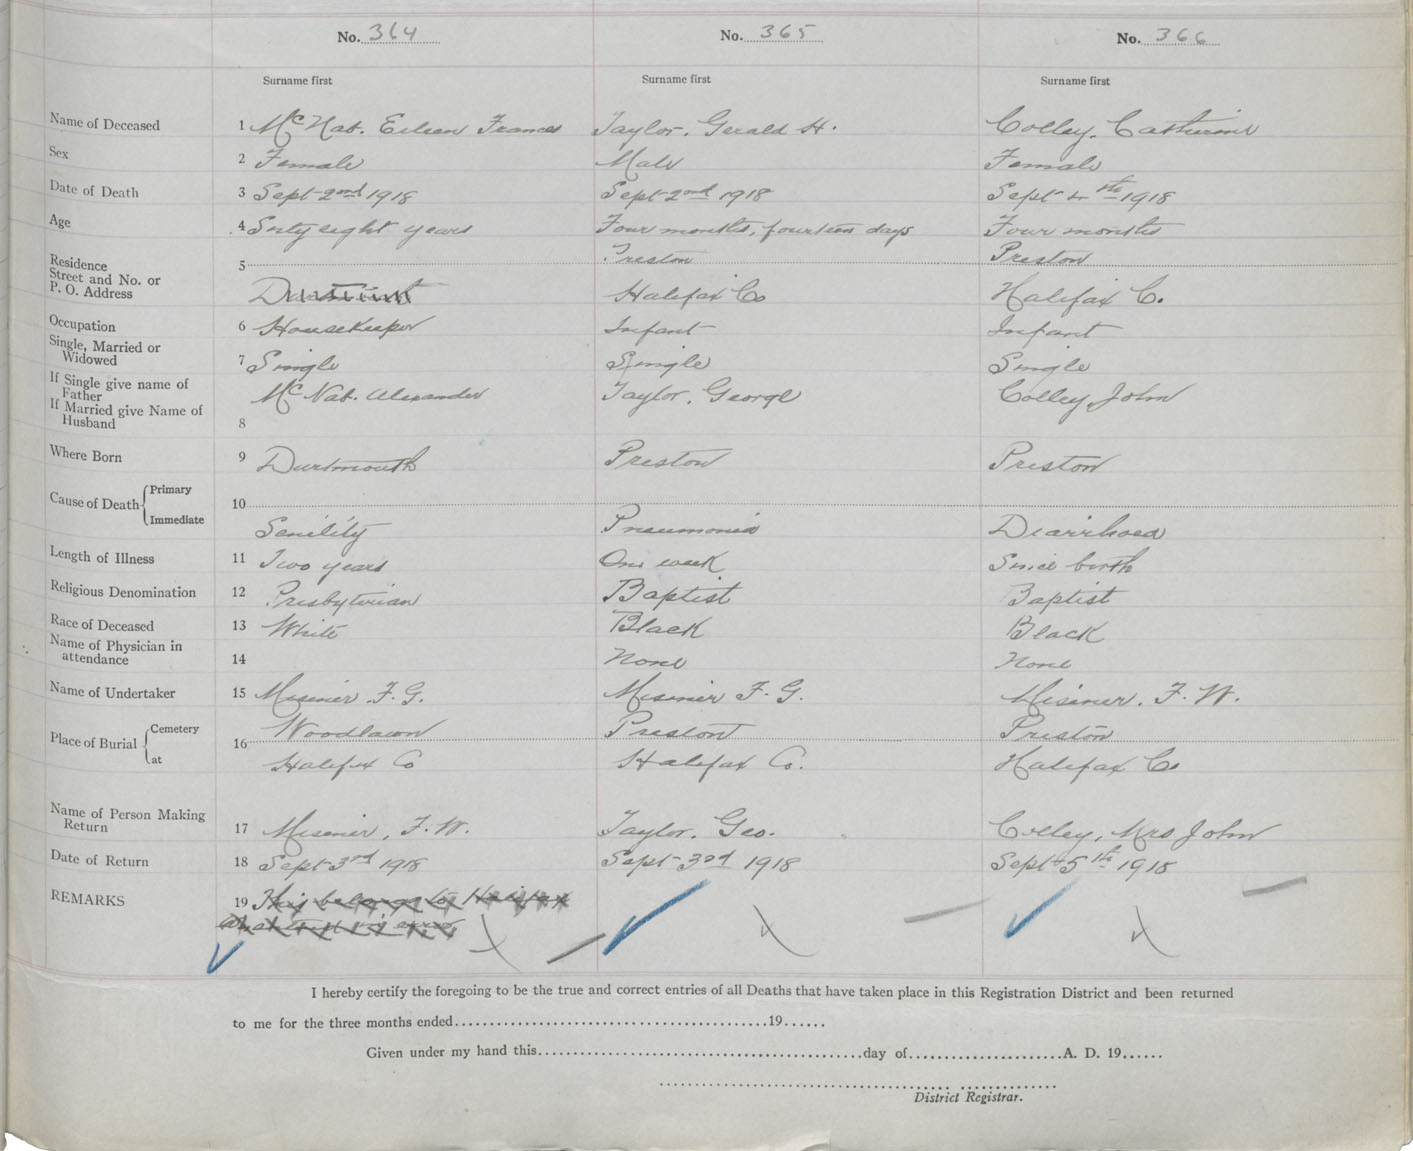 No. 364 No. 365 No. 366
Surname first Surname first Surname first
Name of Deceased 1 McNab. Eileen Frances Taylor, Gerald H. Colley, Catherine
Sex 2 Female Male Female
Date of Death 3 Sept 2nd 1918 Sept 2nd 1918 Sept 4th 1918
Age 4 Sixty eight years Four months, fourteen days Four months
Residence 5 Preston Preston
Street and No. or
P. O. Address Dartmouth Halifax Co Halifax C.
Occupation 6 Housekeeper Infant Infant
Single, Married or
Widowed 7 Single Single Single
If Single give name of
Father McNab. Alexander Taylor, George Colley John
If Married give Name of
Husband 8
Where Born 9 Dartmouth Preston Preston
Cause of Death Primary 10
Immediate Senility Pneumonia Diarrhoea
Length of Illness 11 Two years One week Since birth
Religious Denomination 12 Presbyterian Baptist Baptist
Race of Deceased 13 White Black Black
Name of Physician in
attendance 14 None None
Name of Undertaker 15 Misener F. G. Misener F. G. Misener. F. W.
Place of Burial Cemetery 16 Woodlawn Preston Preston
at Halifax Co Halifax Co. Halifax Co
Name of Person Making
Return 17 Misener, F. W. Taylor. Geo. Colley, Mrs John
Date of Return 18 Sept 3rd 1918 Sept 3rd 1918 Sept 5th 1918
REMARKS 19 This belongs to Halifax
I hereby certify the foregoing to be the true and correct entries of all Deaths that have taken place in this Registration District and been returned
to me for the three months ended..........19......
Given under my hand this..........day of..........A. D. 19......
District Registrar.